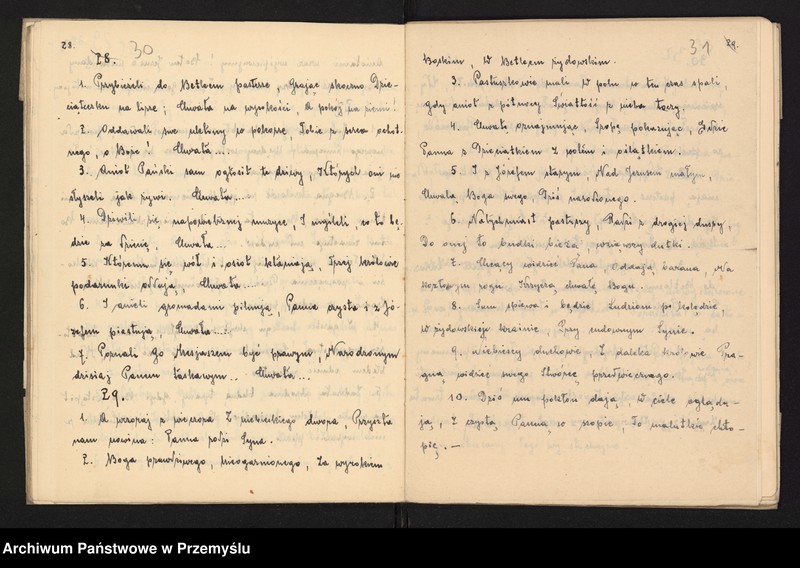 28.
30
28.
1. Przybieżeli do Betleem pasterze, Grając skoczno Dzie-
ciąteczku na lirze; Chwała na wysokości. A pokój na ziemi!
2. Oddawali swe ukłony w pokorze, Tobie z serca ochot-
nego, o Boże! Chwała...
3. Anioł Pański sam ogłosił te dziwy, Których oni nie
słyszeli jak żywi. Chwała...
4. Dziwili się napowietrznej muzyce, I myśleli, co to bę-
dzie za Dziecię, Chwała...
5. Któremu się wół i osioł kłaniają, Trzej królowie
podarunki oddają, Chwała...
6. I anieli gromadami pilnują, Panna czysta i z Jó-
zefem piastują, Chwała...
7. Poznali Go Mesjaszem być prawym, Narodzonym
dzisiaj Panem łaskawym... Chwała...
29.
1. A wczoraj z wieczora Z niebieskiego dwora, Przyszła
nam nowina: Panna rodzi Syna.
2. Boga prawdziwego, Nieogarnionego, Za wyrokiem
31
29.
Boskim, W Betleem żydowskim.
3. Pastuszkowie mali W polu w ten czas spali,
gdy anioł z północy Światłość z nieba toczy.
4. Chwałę oznajmując, Szopę pokazując, Gdzie
Panna z Dzieciątkiem Z wołem i oślątkiem.
5. I z Józefem starym, Nad Jezusem małym,
Chwalą Boga swego, Dziś narodzonego.
6. Natychmiast pasterze, Radzi z drogiej duszy,
Do onej to budki bieżą wziąwszy dudki.
7. Chcący widzieć Pana, Oddają barana, Na
kozłowym rogu Krzyczą chwałę Bogu.
8. Sam śpiewa i będzie Ludziom po kolędzie,
W żydowskiej krainie, Przy cudownym Synie.
9. Niebiescy duchowie, Z daleka królowie Pra-
gną widzieć swego Stwórcę przedwiecznego.
10. Dziś mu pokłon dają, W ciele oglądа-
ją, Z czystą Panną w szopie, To malutkie chło-
pię. —
Archiwum Państwowe w Przemyślu